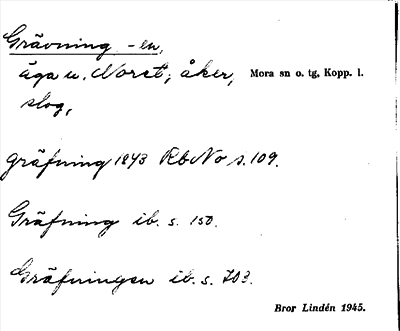 Grävning -en,
äga u. Noret; åker, Mora sn o. tg, Kopp. l.
slog,
gräfning 1843 RbNo s. 109.
Gräfning ib. s. 150.
Gräfningen ib. s. 703.
Bror Lindén 1945.